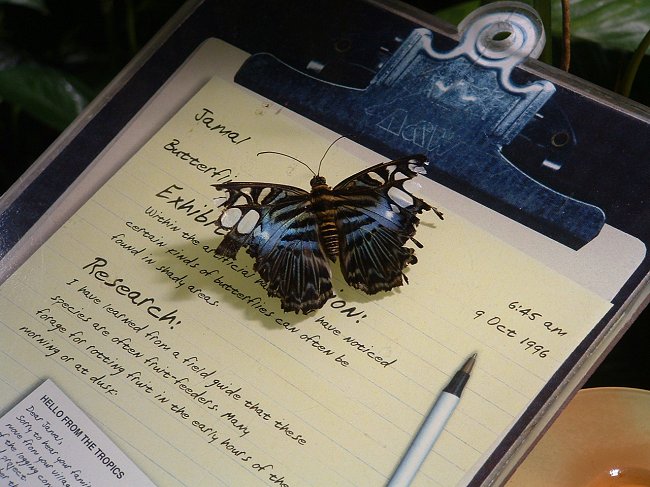 Jamal
Butterflies
Exhib
6:45 am
9 Oct 1996
Within the artificial
on! have noticed
certain kinds of butterflies can often be
found in shady areas.
Research!
I have learned from a field guide that these
species are often fruit-feeders. Many
forage for rotting fruit in the early hours of the
morning or at dusk.
HELLO FROM THE TROPICS
Dear Jamal,
Sorry to hear your
move from your village
of the logging con
project.